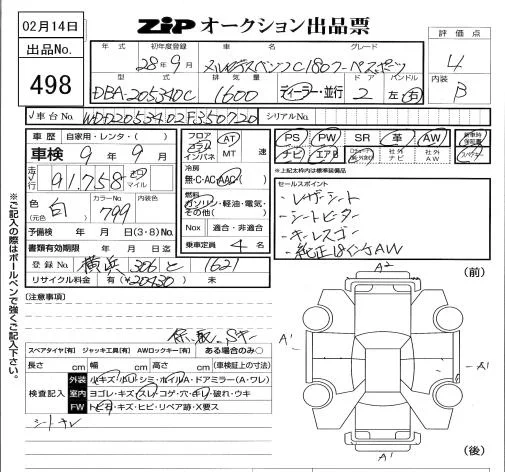 02月14日
ZIP オークション出品票
出品No.
498
評価点
4
内装
B
年式 初年度登録 車名 グレード
28年9月 メルセデスベンツC180クーペスポーツ
型式 排気量 ドア ハンドル
DBA-205340C 1600 ディーラー・並行 2 左・右
車台No. WDD2053402F350720 シリアルNo.
車歴 自家用・レンタ・( )
車検 9年9月
走行 91,758 キロ マイル
色 (元色) 白 カラーNo. 799 内装色
予備検 年 月 日(3・8)No.
書類有効期限 年 月 日迄
登録No. 横浜 306 と 1621
リサイクル料金 有(¥20430) 未
フロア コラム インパネ AT MT 速
冷房 無・C・AC・AAC
燃料 ガソリン・軽油・電気・その他( )
Nox 適合・非適合
乗車定員 4 名
PS PW SR 革 AW
ナビ エアB 社外ナビ 社外AW
※上記太枠内は標準装備品
セールスポイント
・レザーシート
・シートヒーター
・キーレスゴー
・純正18インチAW
[注意事項]
保、取、Sキー
スペアタイヤ[有] ジャッキ工具[有] AWロックキー[有] ある場合のみ○
長さ cm 幅 cm 高さ cm (車検証上の寸法)
検査記入
外装 小キズ・凹・シミ・ホイルA・ドアミラー(A・ワレ)
室内 ヨゴレ・キズ・スレ・コゲ・穴・キレ・破れ・ウキ
FW トビ石・キズ・ヒビ・リペア跡・X要ス
シートキレ
(前)
A2
A'
A'
A'
(後)
※ご記入の際はボールペンで強くご記入下さい。